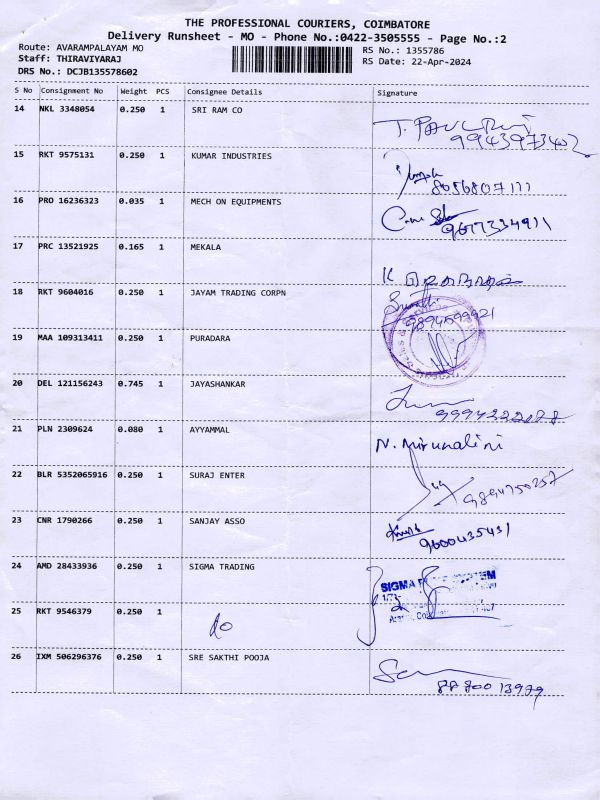 THE PROFESSIONAL COURIERS, COIMBATORE
Delivery Runsheet - MO - Phone No.:0422-3505555 - Page No.:2
Route: AVARAMPALAYAM MO RS No.: 1355786
Staff: THIRAVIYARAJ RS Date: 22-Apr-2024
DRS No.: DCJB135578602
S No Consignment No Weight PCS Consignee Details Signature
14 NKL 3348054 0.250 1 SRI RAM CO
9943973402
15 RKT 9575131 0.250 1 KUMAR INDUSTRIES
8056807111
16 PRO 16236323 0.035 1 MECH ON EQUIPMENTS
9677334911
17 PRC 13521925 0.165 1 MEKALA
18 RKT 9604016 0.250 1 JAYAM TRADING CORPN
19 MAA 109313411 0.250 1 PURADARA
20 DEL 121156243 0.745 1 JAYASHANKAR
21 PLN 2309624 0.080 1 AYYAMMAL N. Mirunalini
22 BLR 5352065916 0.250 1 SURAJ ENTER
9894750257
23 CNR 1790266 0.250 1 SANJAY ASSO
9600435431
24 AMD 28433936 0.250 1 SIGMA TRADING SIGMA
25 RKT 9546379 0.250 1
26 IXM 506296376 0.250 1 SRE SAKTHI POOJA
8870013979